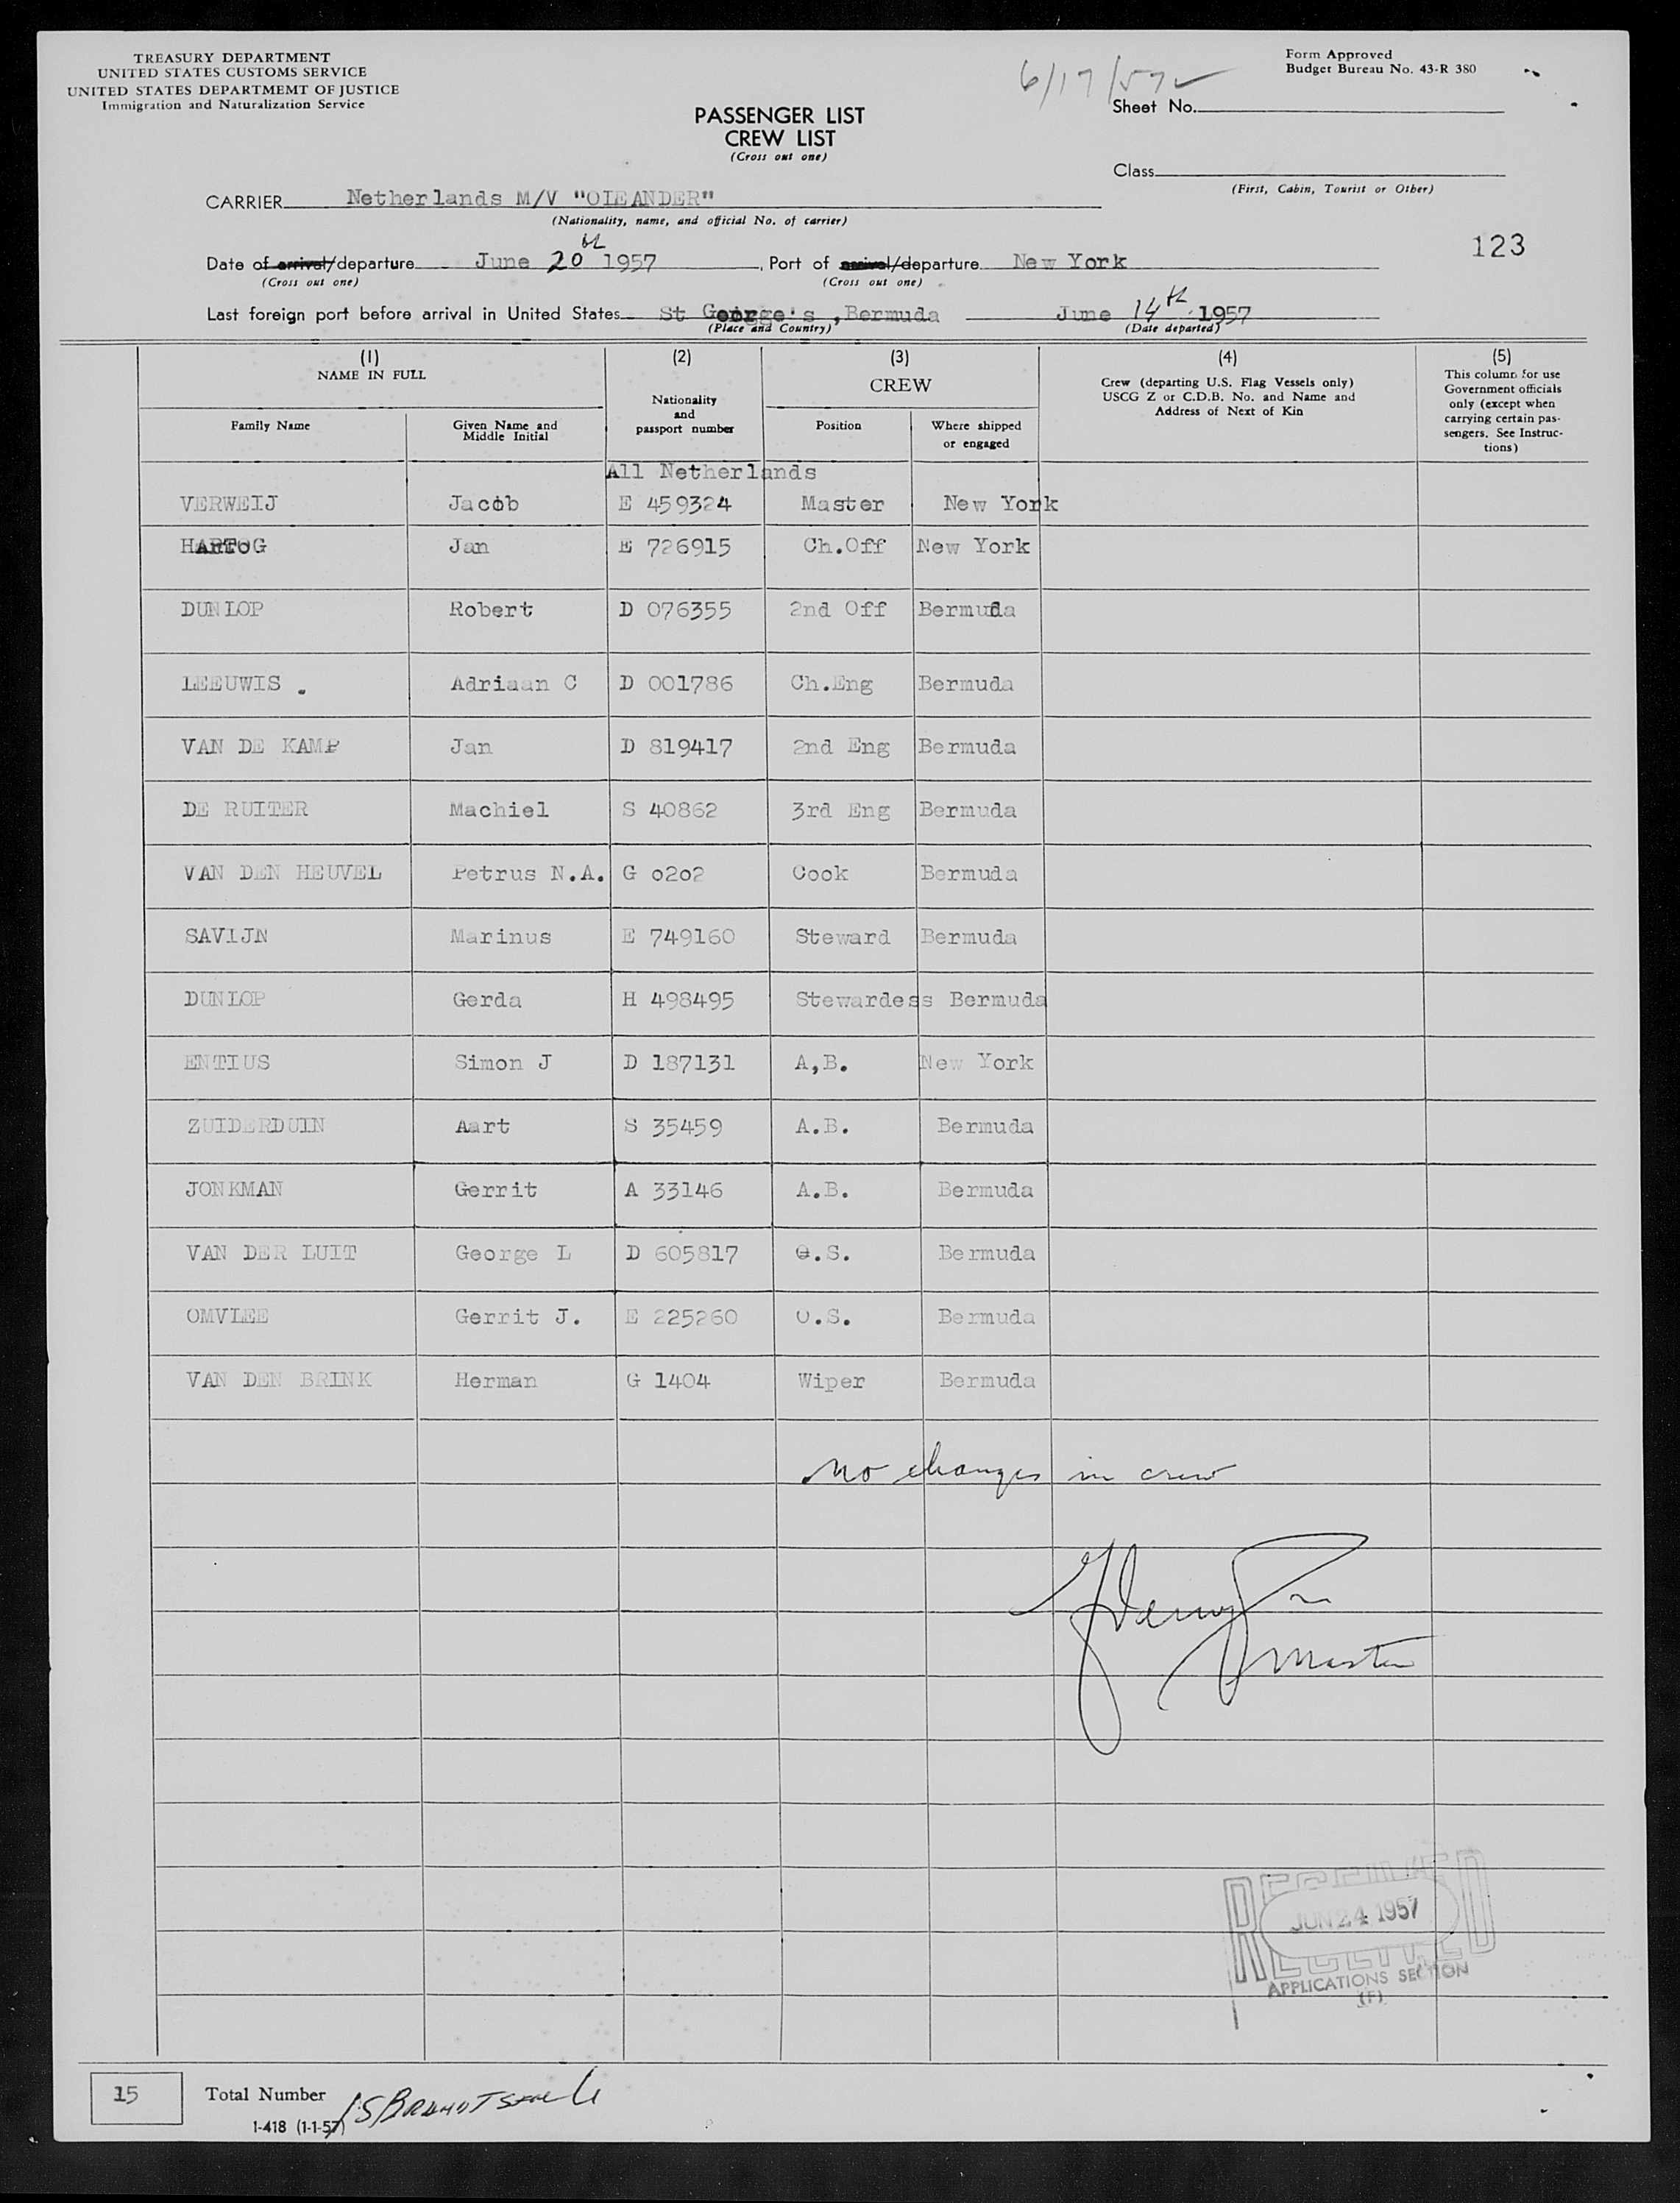 TREASURY DEPARTMENT
UNITED STATES CUSTOMS SERVICE
UNITED STATES DEPARTMEMT OF JUSTICE
Immigration and Naturalization Service
6/17/57
Form Approved
Budget Bureau No. 43-R 380
Sheet No.
PASSENGER LIST
CREW LIST
(Cross out one)
Class
(First, Cabin, Tourist or Other)
CARRIER Netherlands M/V "OLEANDER"
(Nationality, name, and official No. of carrier)
123
Date of arrival/departure June 20th 1957, Port of arrival/departure New York
(Cross out one) (Cross out one)
Last foreign port before arrival in United States St George's, Bermuda June 14th 1957
(Place and Country) (Date departed)
(1) (2) (3) (4) (5)
NAME IN FULL
Family Name
Given Name and Middle Initial
Nationality and passport number
CREW
Position
Where shipped or engaged
Crew (departing U.S. Flag Vessels only)
USCG Z or C.D.B. No. and Name and
Address of Next of Kin
This column for use
Government officials
only (except when
carrying certain pas-
sengers. See Instruc-
tions)
All Netherlands
VERWEIJ Jacob E 459324 Master New York
HARTOG Jan E 726915 Ch.Off New York
DUNLOP Robert D 076355 2nd Off Bermuda
LEEUWIS . Adriaan C D 001786 Ch.Eng Bermuda
VAN DE KAMP Jan D 819417 2nd Eng Bermuda
DE RUITER Machiel S 40862 3rd Eng Bermuda
VAN DEN HEUVEL Petrus N.A. G 0202 Cook Bermuda
SAVIJN Marinus E 749160 Steward Bermuda
DUNLOP Gerda H 498495 Stewardess Bermuda
ENTIUS Simon J D 187131 A,B. New York
ZUIDERDUIN Aart S 35459 A.B. Bermuda
JONKMAN Gerrit A 33146 A.B. Bermuda
VAN DER LUIT George L D 605817 O.S. Bermuda
OMVLEE Gerrit J. E 225260 O.S. Bermuda
VAN DEN BRINK Herman G 1404 Wiper Bermuda
No changes in crew
Master
RECEIVED
JUN 24 1957
RECEIVED
APPLICATIONS SECTION
(F)
15 Total Number
I-418 (1-1-57)